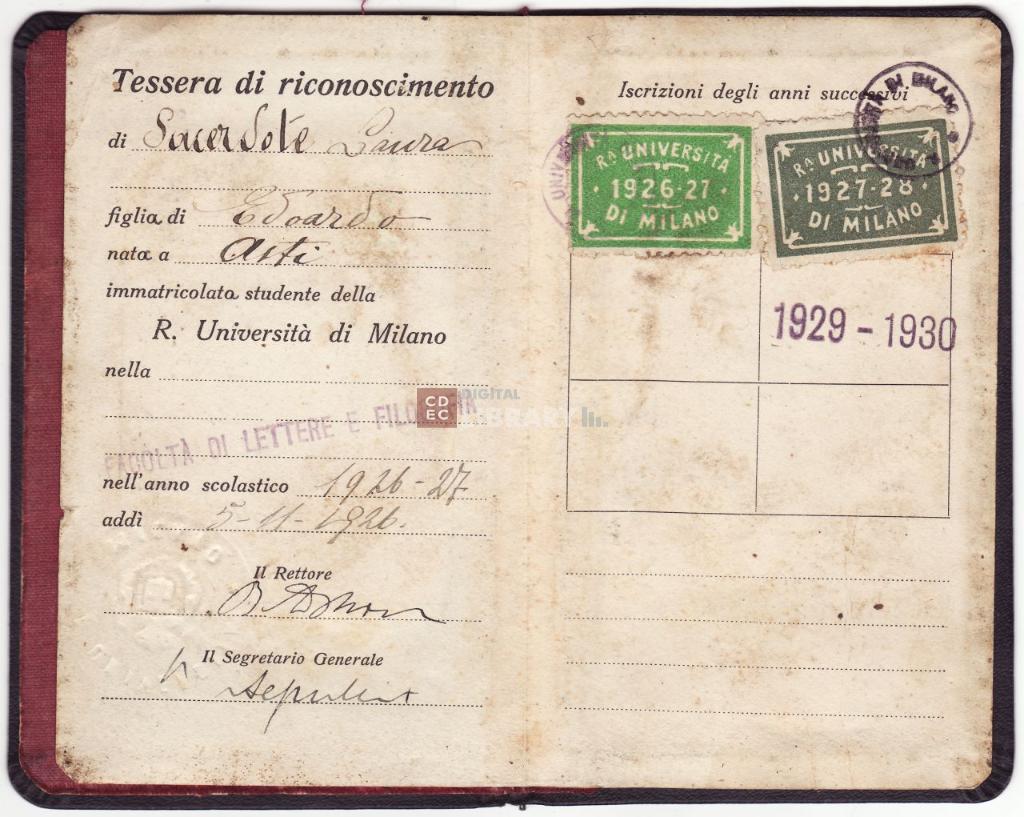 Tessera di riconoscimento
di Sacerdote Laura
figlia di Edoardo
nata a Asti
immatricolata studente della
R. Università di Milano
nella
FACOLTÀ DI LETTERE E FILOSOFIA
CDEC DIGITAL LIBRARY
nell'anno scolastico 1926-27
addì 5-11-1926.
Il Rettore
Il Segretario Generale
Iscrizioni degli anni successivi
Rᴬ UNIVERSITÀ
1926-27
DI MILANO
Rᴬ UNIVERSITÀ
1927-28
DI MILANO
1929 - 1930